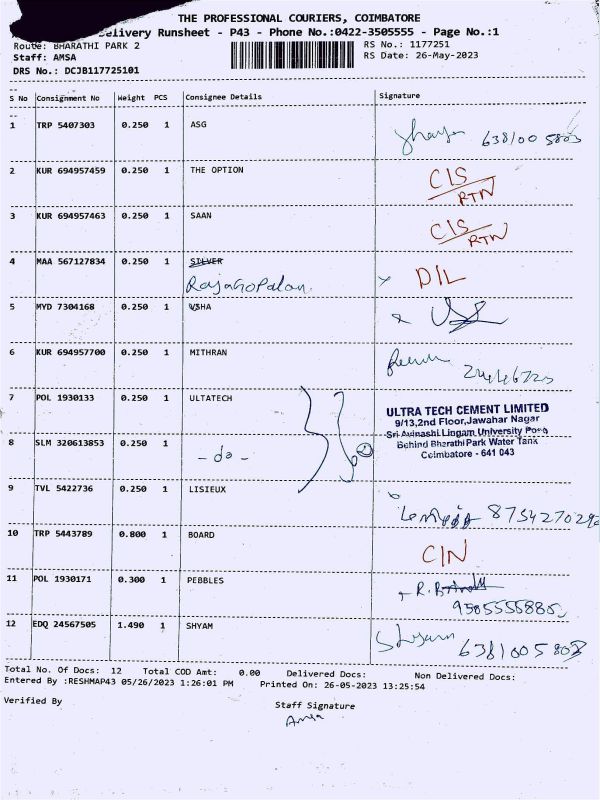 THE PROFESSIONAL COURIERS, COIMBATORE
Delivery Runsheet - P43 - Phone No.:0422-3505555 - Page No.:1
Route: BHARATHI PARK 2 RS No.: 1177251
Staff: AMSA RS Date: 26-May-2023
DRS No.: DCJB117725101
S No Consignment No Weight PCS Consignee Details Signature
1 TRP 5407303 0.250 1 ASG 638100 5803
2 KUR 694957459 0.250 1 THE OPTION CIS/RTN
3 KUR 694957463 0.250 1 SAAN CIS/RTN
4 MAA 567127834 0.250 1 SILVER D/L
Rajagopalan.
5 MYD 7304168 0.250 1 USHA
6 KUR 694957700 0.250 1 MITHRAN
7 POL 1930133 0.250 1 ULTATECH
ULTRA TECH CEMENT LIMITED
9/13,2nd Floor,Jawahar Nagar
Sri Avinashi Lingam University Post
Behind Bharathi Park Water Tank
Coimbatore - 641 043
8 SLM 320613853 0.250 1 - do -
9 TVL 5422736 0.250 1 LISIEUX 8754270292
10 TRP 5443789 0.800 1 BOARD CIN
11 POL 1930171 0.300 1 PEBBLES R.
12 EDQ 24567505 1.490 1 SHYAM Shyam 638100 5803
Total No. Of Docs: 12 Total COD Amt: 0.00 Delivered Docs: Non Delivered Docs:
Entered By :RESHMAP43 05/26/2023 1:26:01 PM Printed On: 26-05-2023 13:25:54
Verified By Staff Signature
Amsa